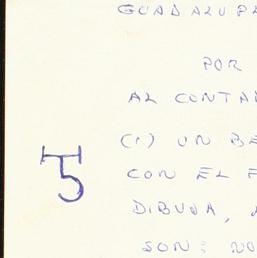 GUADALUPE
POR
AL CONTA
(1) UN BE
CON EL F
DIBUJA,
SON: NO